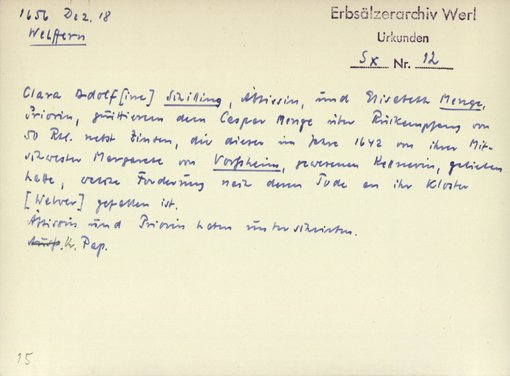 1656 Dez. 18
Welffern
Erbsälzerarchiv Werl
Urkunden
Sx Nr. 12
Clara Adolf[ine] Schilling, Äbtissin, und Elisabeth Menge,
Priorin, quittieren dem Caspar Menge über Rückempfang von
50 Rtl. nebst Zinsen, die dieser im Jahre 1642 von ihrer Mit-
schwester Margarete von Vorsheim, gewesenen Kellnerin, geliehen
hatte, welche Forderung nach deren Tode an ihr Kloster
[Welver] gefallen ist.
Äbtissin und Priorin haben unterschrieben.
Pap.
15